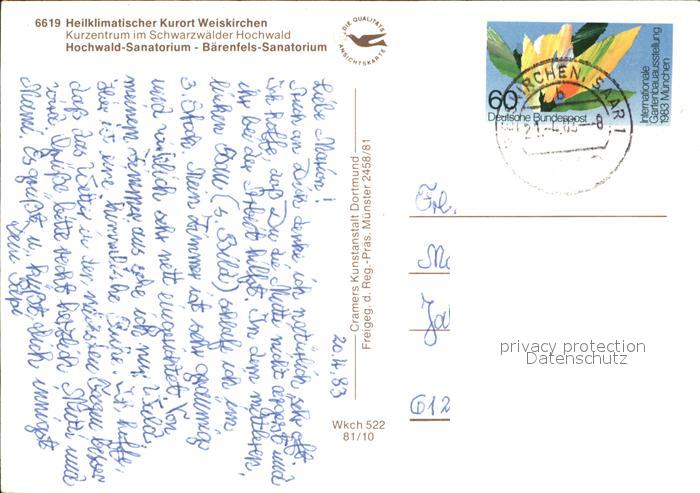 6619 Heilklimatischer Kurort Weiskirchen
Kurzentrum im Schwarzwälder Hochwald
Hochwald-Sanatorium - Bärenfels-Sanatorium
DIE QUALITÄTS
ANSICHTSKARTE
60
Deutsche Bundespost
Internationale
Gartenbauausstellung
1983 München
KIRCHEN, SAAR 1
b
21.-4.83.-8
20.4.83
Liebe Marion!
Auch an Dich denke ich natürlich sehr oft.
Ich hoffe, daß Du die Mutti nicht ärgerst und
ihr bei der Arbeit hilfst. In dem mittleren,
linken Bau (s. Bild) schlafe ich im
3. Stock. Mein Zimmer ist sehr geräumig
und wirklich sehr nett eingerichtet. Von
meinem Zimmer aus sehe ich nur Wald.
Hier ist eine himmlische Ruhe. Ich hoffe,
daß das Wetter in den nächsten Tagen besser
wird. Grüße bitte recht herzlich Mutti und
Mami. Es grüßt u. küßt Dich innigst
Dein Papi
Cramers Kunstanstalt Dortmund
Freigeg. d. Reg.-Präs. Münster 2458/81
Wkch 522
81/10
Frl.
612
privacy protection
Datenschutz